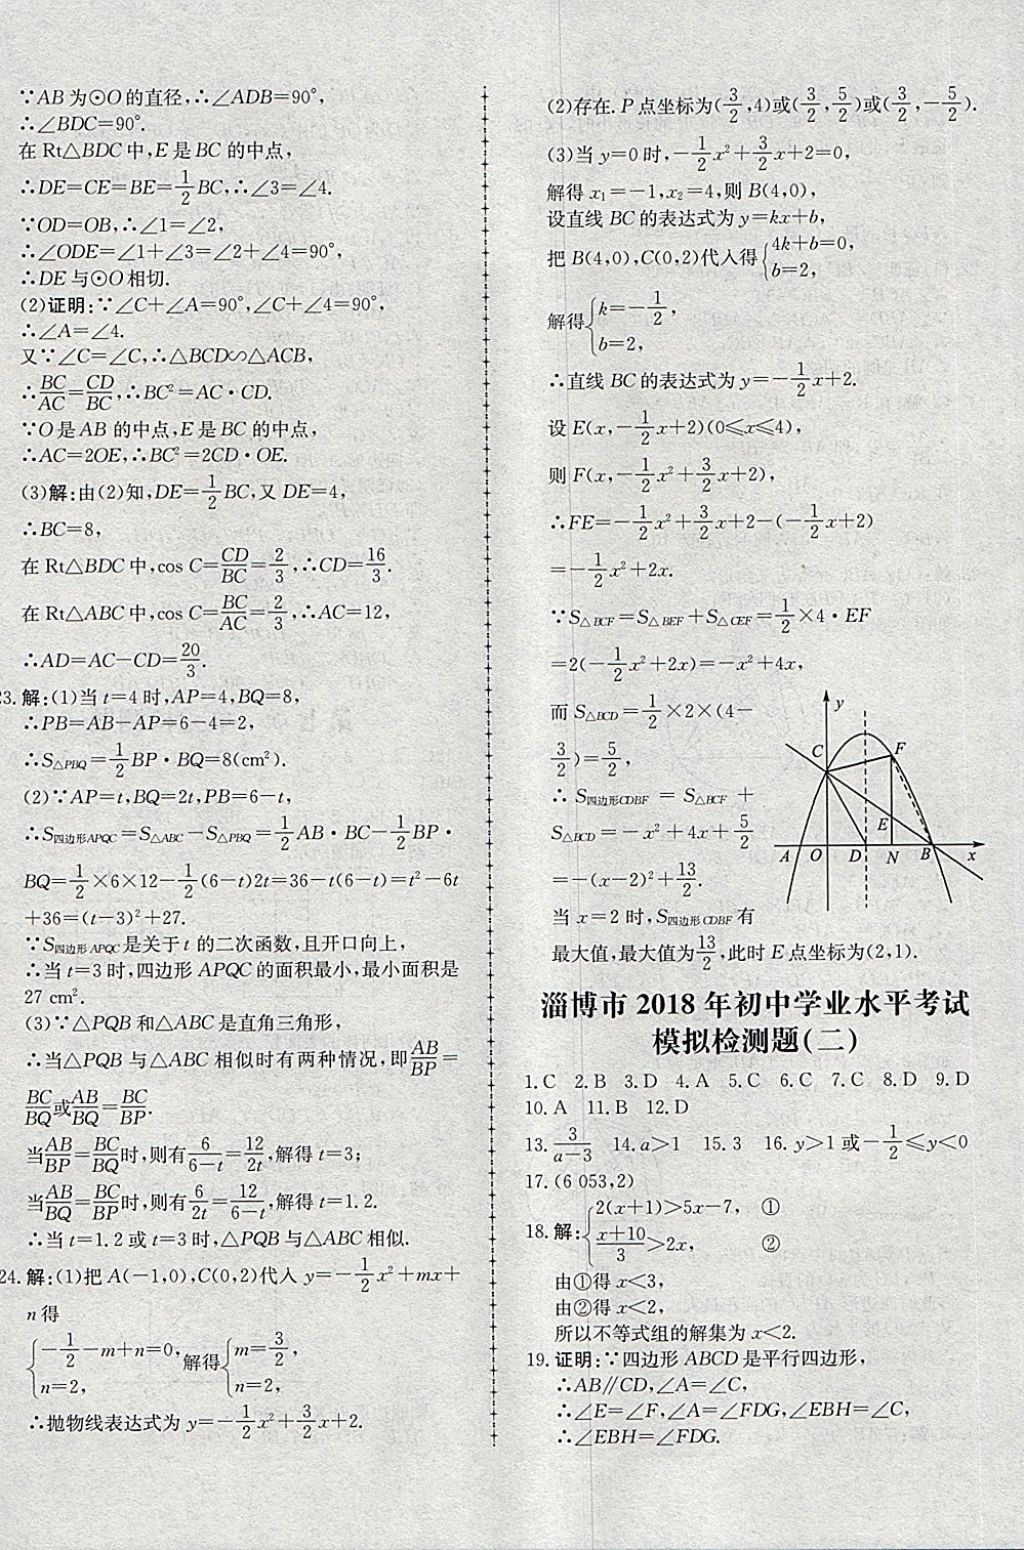 ∵AB为⊙O的直径,∴∠ADB=90°,
∴∠BDC=90°.
在 Rt△BDC中,E是BC的中点,
∴DE=CE=BE=1/2BC,∴∠3=∠4.
∵OD=OB,∴∠1=∠2,
∴∠ODE=∠1+∠3=∠2+∠4=90°,
∴DE与⊙O相切.
(2)证明:∵∠C+∠A=90°,∠C+∠4=90°,
∴∠A=∠4.
又∵∠C=∠C,∴△BCD∽△ACB,
∴BC/AC=CD/BC,∴BC²=AC·CD.
∵O是AB的中点,E是BC的中点,
∴AC=2OE,∴BC²=2CD·OE.
(3)解:由(2)知,DE=1/2BC,又DE=4,
∴BC=8,
在Rt△BDC中,cos C=CD/BC=2/3,∴CD=16/3.
在Rt△ABC中,cos C=BC/AC=2/3,∴AC=12,
∴AD=AC-CD=20/3.
23.解:(1)当t=4时,AP=4,BQ=8,
∴PB=AB-AP=6-4=2,
∴S△PBQ=1/2BP·BQ=8(cm²).
(2)∵AP=t,BQ=2t,PB=6-t,
∴S四边形APQC=S△ABC-S△PBQ=1/2AB·BC-1/2BP·
BQ=1/2×6×12-1/2(6-t)2t=36-t(6-t)=t²-6t
+36=(t-3)²+27.
∵S四边形APQC是关于t的二次函数,且开口向上,
∴当t=3时,四边形APQC的面积最小,最小面积是
27 cm².
(3)∵△PQB和△ABC是直角三角形,
∴当△PQB与△ABC相似时有两种情况,即AB/BP=
BC/BQ或AB/BQ=BC/BP.
当AB/BP=BC/BQ时,则有6/(6-t)=12/2t,解得t=3;
当AB/BQ=BC/BP时,则有6/2t=12/(6-t),解得t=1.2.
∴当t=1.2或t=3时,△PQB与△ABC相似.
24.解:(1)把A(-1,0),C(0,2)代入y=-1/2x²+mx+
n得
{-1/2-m+n=0, n=2, 解得{m=3/2, n=2,
∴抛物线表达式为y=-1/2x²+3/2x+2.
(2)存在.P点坐标为(3/2,4)或(3/2,5/2)或(3/2,-5/2).
(3)当y=0时,-1/2x²+3/2x+2=0,
解得x₁=-1,x₂=4,则B(4,0),
设直线BC的表达式为y=kx+b,
把B(4,0),C(0,2)代入得{4k+b=0, b=2,
解得{k=-1/2, b=2,
∴直线BC的表达式为y=-1/2x+2.
设E(x,-1/2x+2)(0≤x≤4),
则F(x,-1/2x²+3/2x+2),
∴FE=-1/2x²+3/2x+2-(-1/2x+2)
=-1/2x²+2x.
∵S△BCF=S△BEF+S△CEF=1/2×4·EF
=2(-1/2x²+2x)=-x²+4x,
而S△BCD=1/2×2×(4-
3/2)=5/2,
∴S四边形CDBF=S△BCF+
S△BCD=-x²+4x+5/2
=-(x-2)²+13/2.
当x=2时,S四边形CDBF有
最大值,最大值为13/2,此时E点坐标为(2,1).
y
C
F
E
A O D N B x
淄博市2018年初中学业水平考试
模拟检测题(二)
1.C 2.B 3.D 4.A 5.C 6.C 7.C 8.D 9.D
10.A 11.B 12.D
13. 3/(a-3) 14.a>1 15.3 16.y>1或-1/2≤y<0
17.(6 053,2)
18.解:{2(x+1)>5x-7, ①
(x+10)/3>2x, ②
由①得x<3,
由②得x<2,
所以不等式组的解集为x<2.
19.证明:∵四边形ABCD是平行四边形,
∴AB∥CD,∠A=∠C,
∴∠E=∠F,∠A=∠FDG,∠EBH=∠C,
∴∠EBH=∠FDG.